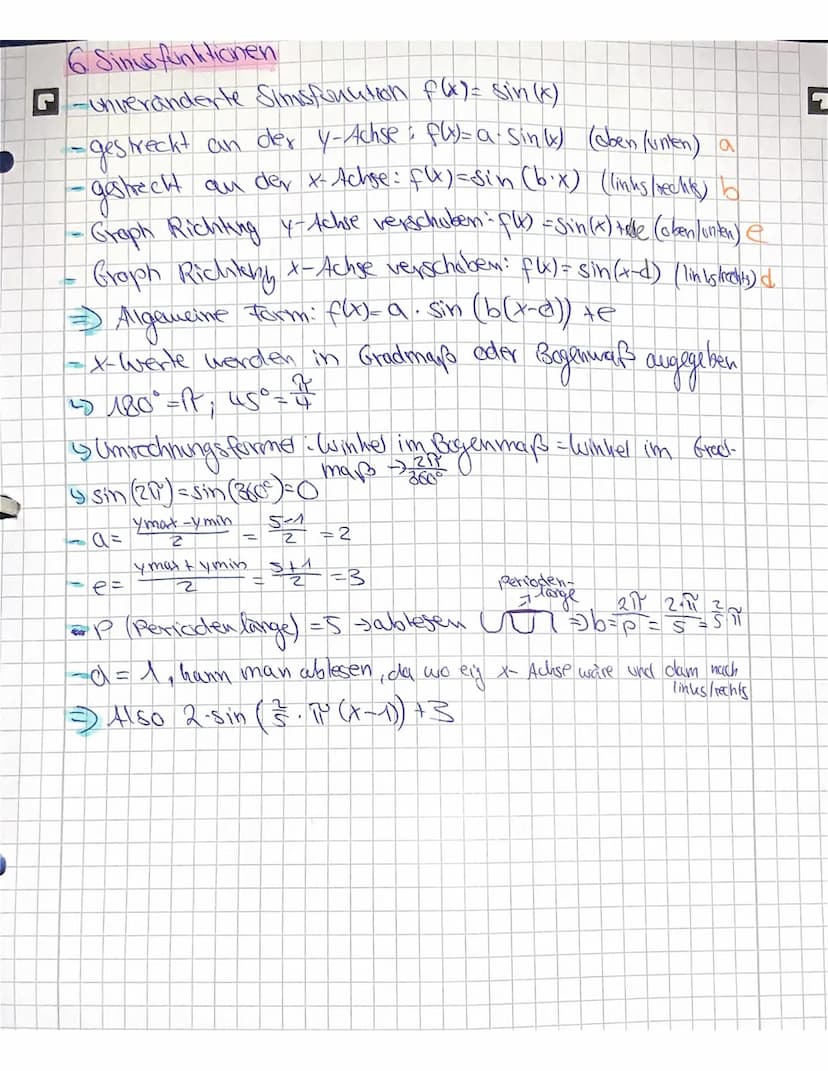 6 Sinusfunktionen
- unveränderte Sinusfunktion f(x) = sin(x)
- gestreckt an der y-Achse: f(x) = a · sin(x) (oben/unten) a
- gestreckt an der x-Achse: f(x) = sin (b·x) (links/rechts) b
- Graph Richtung y-Achse verschoben: f(x) = sin(x) + e (oben/unten) e
- Graph Richtung x-Achse verschoben: f(x) = sin(x-d) (links/rechts) d
⇒ Algemeine Form: f(x) = a · sin (b(x-d)) + e
- x-Werte werden in Gradmaß oder Bogenmaß angegeben
↳ 180° = π; 45° = π/4
↳ Umrechnungsformel: Winkel im Bogenmaß = Winkel im Grad-
maß → 2π/360°
↳ sin (2π) = sin (360°) = 0
- a = ymax - ymin / 2 = 5-1 / 2 = 2
- e = ymax + ymin / 2 = 5+1 / 2 = 3
Perioden-
→ länge
- P (Periodenlänge) = 5 → ablesen ⇒ b = 2π/P = 2·π/5 = 2/5 π
- d = 1, kann man ablesen, da wo eig x-Achse wäre und dann nach
links/rechts
⇒ Also 2·sin (2/5 · π (x-1)) + 3